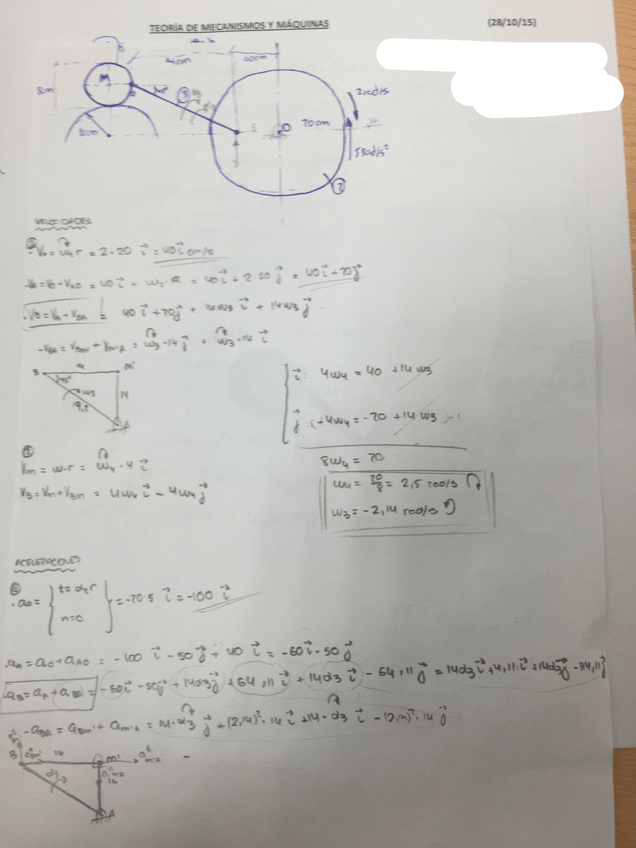 TEORÍA DE MECANISMOS Y MÁQUINAS (28/10/15)
M
8cm
10cm
45°
③
A
O
20cm
2rad/s
5 rad/s²
②
VELOCIDADES
V₀ = ω₂·r = 2·20 i = 40 i cm/s
VA = V₀ + VAO = 40 i + ω₂·R = 40 i + 2·10 j = 40 i + 20 j
VB = VA + VBA = 40 i + 20 j + 14ω₃ i + 14ω₃ j
-VBA = VBm' + Vm'A = ω₃·14 j + ω₃·14 i
B m'
45°
ω₃
14
19,8
A
i: 4ω₄ = 40 + 14ω₃
j: (+4ω₄ = -20 + 14ω₃)·-1
8ω₄ = 20
ω₄ = 20/8 = 2,5 rad/s
ω₃ = -2,14 rad/s
Vm = ω·r = ω₄·4 i
VB = Vm + VBm = 4ω₄ i - 4ω₄ j
ACELERACIONES
a₀ = { t = α₂·r n = 0 } = -20·5 i = -100 i
aA = a₀ + aAO = -100 i - 50 j + 40 i = -60 i - 50 j
aB = aA + aBA = -60 i - 50 j + 14α₃ j + 64,11 i + 14α₃ i - 64,11 j = 14α₃ i + 4,11 i + 14α₃ j - 114,11 j
-aBA = aBm' + am'A = 14·α₃ j + (2,14)²·14 i + 14·α₃ i - (2,14)²·14 j
B 14 m'
α₃
A